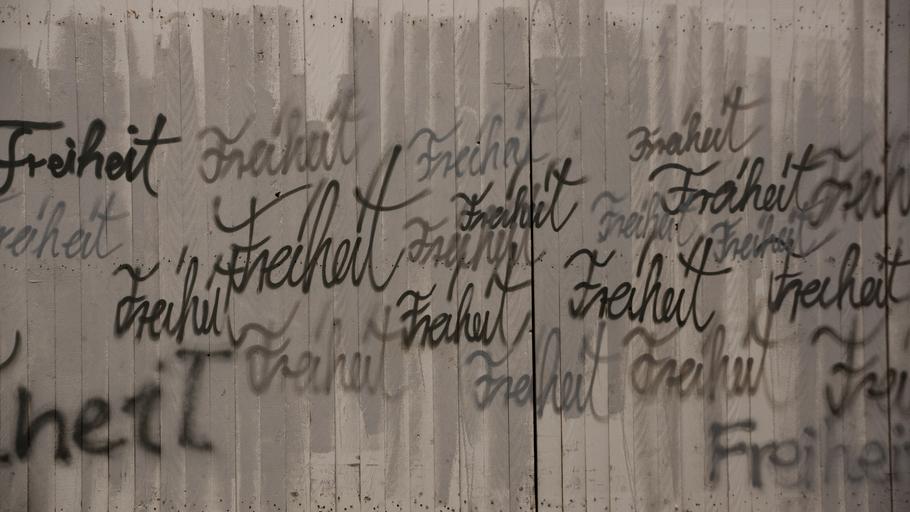 Freiheit
Freiheit
Freiheit
Freiheit
Freiheit
Freiheit
Freiheit
Freih
reiheit
Freiheit
Freiheit
Freiheit
Freiheit
Freiheit
Freiheit
Freiheit
Freiheit
Freiheit
Freiheit
Freiheit
Freiheit
Frei
heiT
Freihei